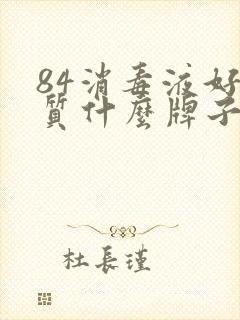 84消毒液好
質什麼牌子
杜長瑾